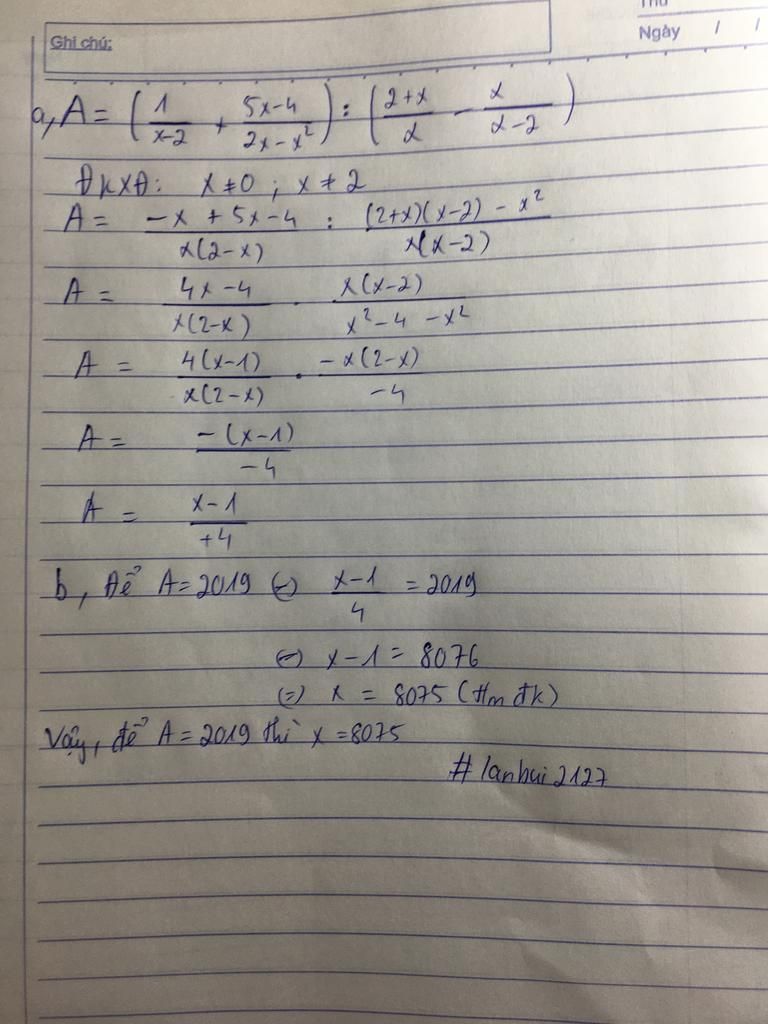 Thứ
Ghi chú:
Ngày / /
a, A = ( 1/(x-2) + (5x-4)/(2x-x²) ) : ( (2+x)/x - x/(x-2) )
ĐKXĐ: x ≠ 0 ; x ≠ 2
A = (-x + 5x - 4)/(x(2-x)) : ((2+x)(x-2) - x²)/(x(x-2))
A = (4x - 4)/(x(2-x)) . (x(x-2))/(x² - 4 - x²)
A = (4(x-1))/(x(2-x)) . (-x(2-x))/(-4)
A = (-(x-1))/(-4)
A = (x-1)/(+4)
b, Để A = 2019 (=) (x-1)/4 = 2019
(=) x - 1 = 8076
(=) x = 8075 (tm đk)
Vậy, để A = 2019 thì x = 8075
# lanbui2127